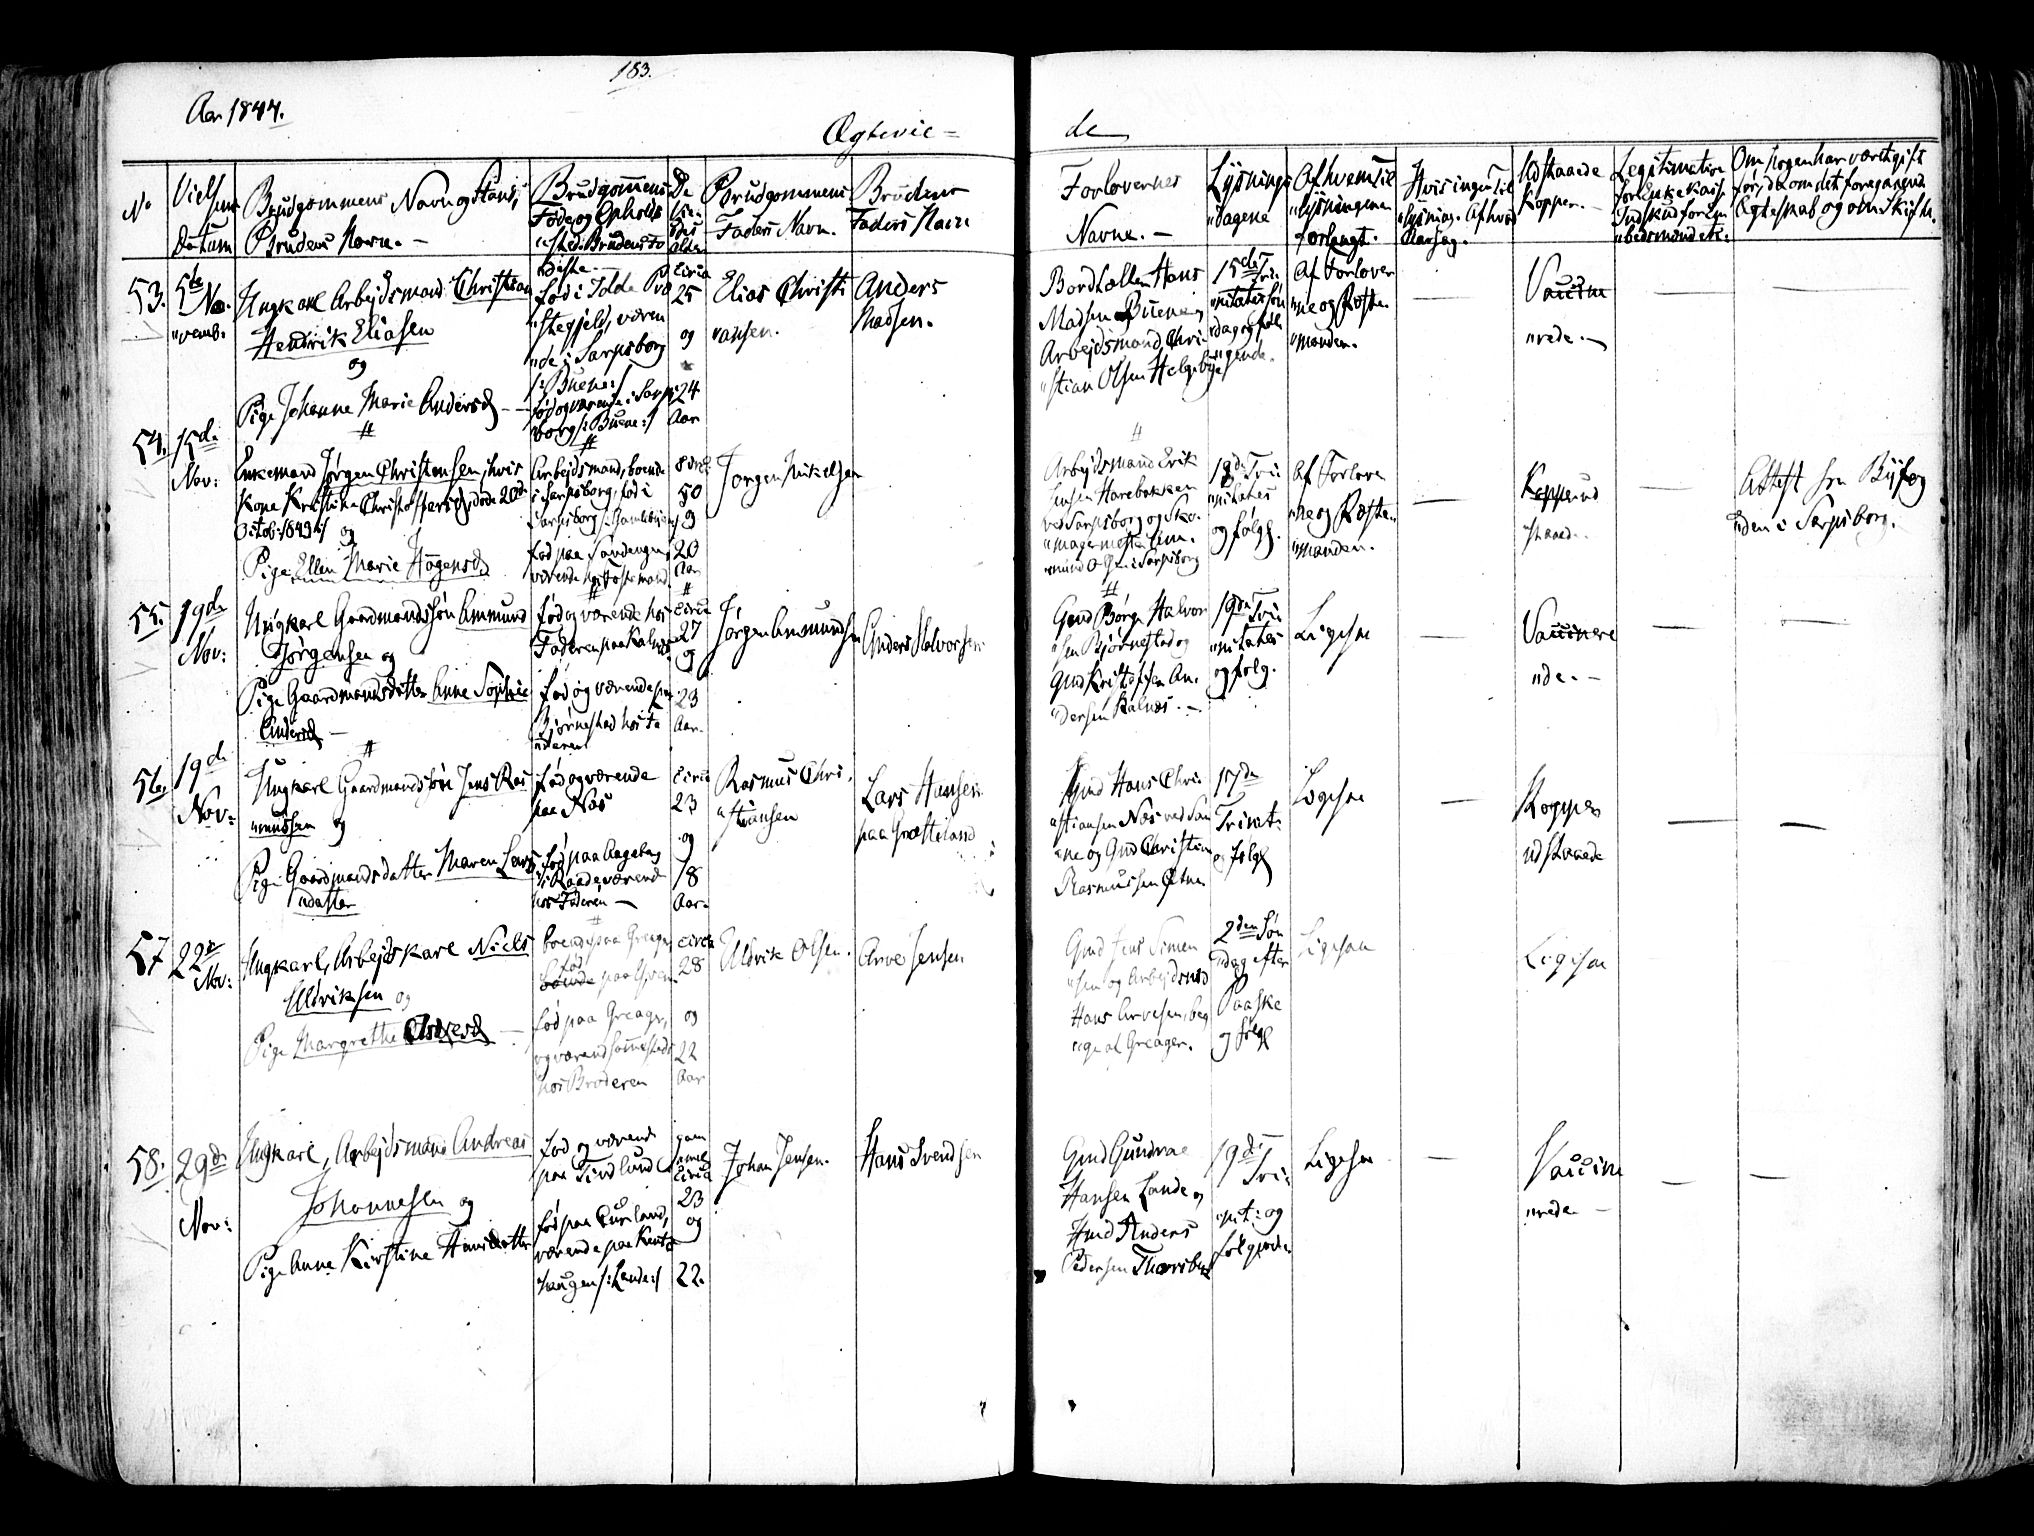 183.
Aar 1844.
Ægtevie-
de
No
Vielsens
Datum
Brudgommens Navn og Stand,
Brudens Navn. -
Brudgommens
Føde og Opholds
"sted. Brudens do
De
Vie-
des
Alder
Brudgommens
Faders Navn.
Brudens
Faders Navn
Forlovernes
Navne. -
Lysnings
"dagene
Af hvem Til
"lysningen
forlangt.
Hvis ingen Til
"lysning. Af hvad
Aarsag.
Udstaaede
Kopper. -
Legitimation
for Enkekasse
Om Nogen har været gift
før, da om det foregaaende
Ægteskab og om Skifte.
53.
5te
No-
"vemb.
Ungkarl Arbejdsmand Christian
Hendrik Eliasen
og
Pige Johanne Marie Andersd
født i Idde Præ
"stegjeld, væren
"de i Sarpsborg
/: Buene :/
fød og værende i Sarps
borg /: Buene :/
Circa
25
og
24
Aar
Elias Christi
"ansen.
Anders
Madsen.
Hans
Madsen Buene og
Arbejdsmand Chri-
"stian Olsen Helgebye
15de Tri-
"nitatis Søn
"dag og føl
"gende.
Af Forlover
"ne og Præste
"manden.
Vaccine
"rede. -
54.
15de
Nov:
Enkemand Jørgen Christensen, hvis
Kone Kristine Christophersd, døde 20de
Octob: 1843 :/ og
Pige Ellen Marie Hågensd
Arbejdsmand, boende
i Sarpsborg, fød i
Sarpsborg /: Gamlebyen :/
fød paa Sandengen
50
og
20
Aar
Jørgen Mikelsen
Arbejdsmand Erik
Jensen Harebakken
ved Sarpsborg og Sko-
"magermester Am-
"mund i Sarpsborg
18de Tri-
"nitatis
og følg.
Af Forlove
"ne og Præste
"manden.
Kopper ud
"staaede.
Attest fra Byfog
"den i Sarpsborg.
55.
19de
Nov:
Ungkarl Gaardmandssøn Ammund
Jørgensen og
Pige Gaardmandsdatter Anne Sophie
Andersd -
fød og værende hos
Faderen paa Kalnæs
fød og værende paa
Bjørnestad hos Fa
"deren
Circa
27
og
23
Aar.
Jørgen Amundsen
Anders Halvorsen
Gmd Børge Halvor
"sen Bjørnestad og
Gmd Kristoffer An-
"dersen Kalnæs. -
19de Tri-
"nitatis
og følg.
Ligesaa
Vaccinere
"de. -
56.
19de
Nov:
Ungkarl Gaardmandssøn Jens Ras
"mussen og
Pige Gaardmandsdatter Maren Lars
"datter
fød og værende
paa Næs
fød paa Aageberg
i Raade værende
hos Faderen -
Circa
23
og
18
Aar.
Rasmus Chri-
"stiansen
Lars Hansen
paa
Gmd Hans Chri-
"stiansen Næs ved San
"ne og Gmd Christian
Rasmussen
17de
Trinit:
og følg
Ligesaa
Kopper
udstaaede
57
22de
Nov:
Ungkarl, Arbejdskarl Niels
Uldriksen og
Pige Margrethe Arvesd
boende paa Greager
fød
boende paa
fød paa Greager,
og værende sammesteds
hos Broderen
Circa
28
og
22
Aar
Uldrik Olsen.
Arve Jensen
Gmd Jens Simen
"sen og Arbejdsmd
Hans Arvesen, beg
"ge af Greager.
2den Søn
"dag efter
Paaske
og følg
Ligesaa
Ligesaa
58.
29de
Nov:
Ungkarl, Arbejdsmand Andreas
Johannesen og
Pige Anne Kirstine Hansdatter
fød og værende
paa Tindlund
fød paa Lund,
værende paa
haugen /: Lande :/
gam
mel
Circa
23
og
22.
Johan Jensen.
Hans Svendsen
Gmd Gundnar
Hansen Lande og
Hmd Anders
Pedersen Thorsbye
19de
Tri-
"nit: og
følgende
Ligesaa
Vaccine
"rede -